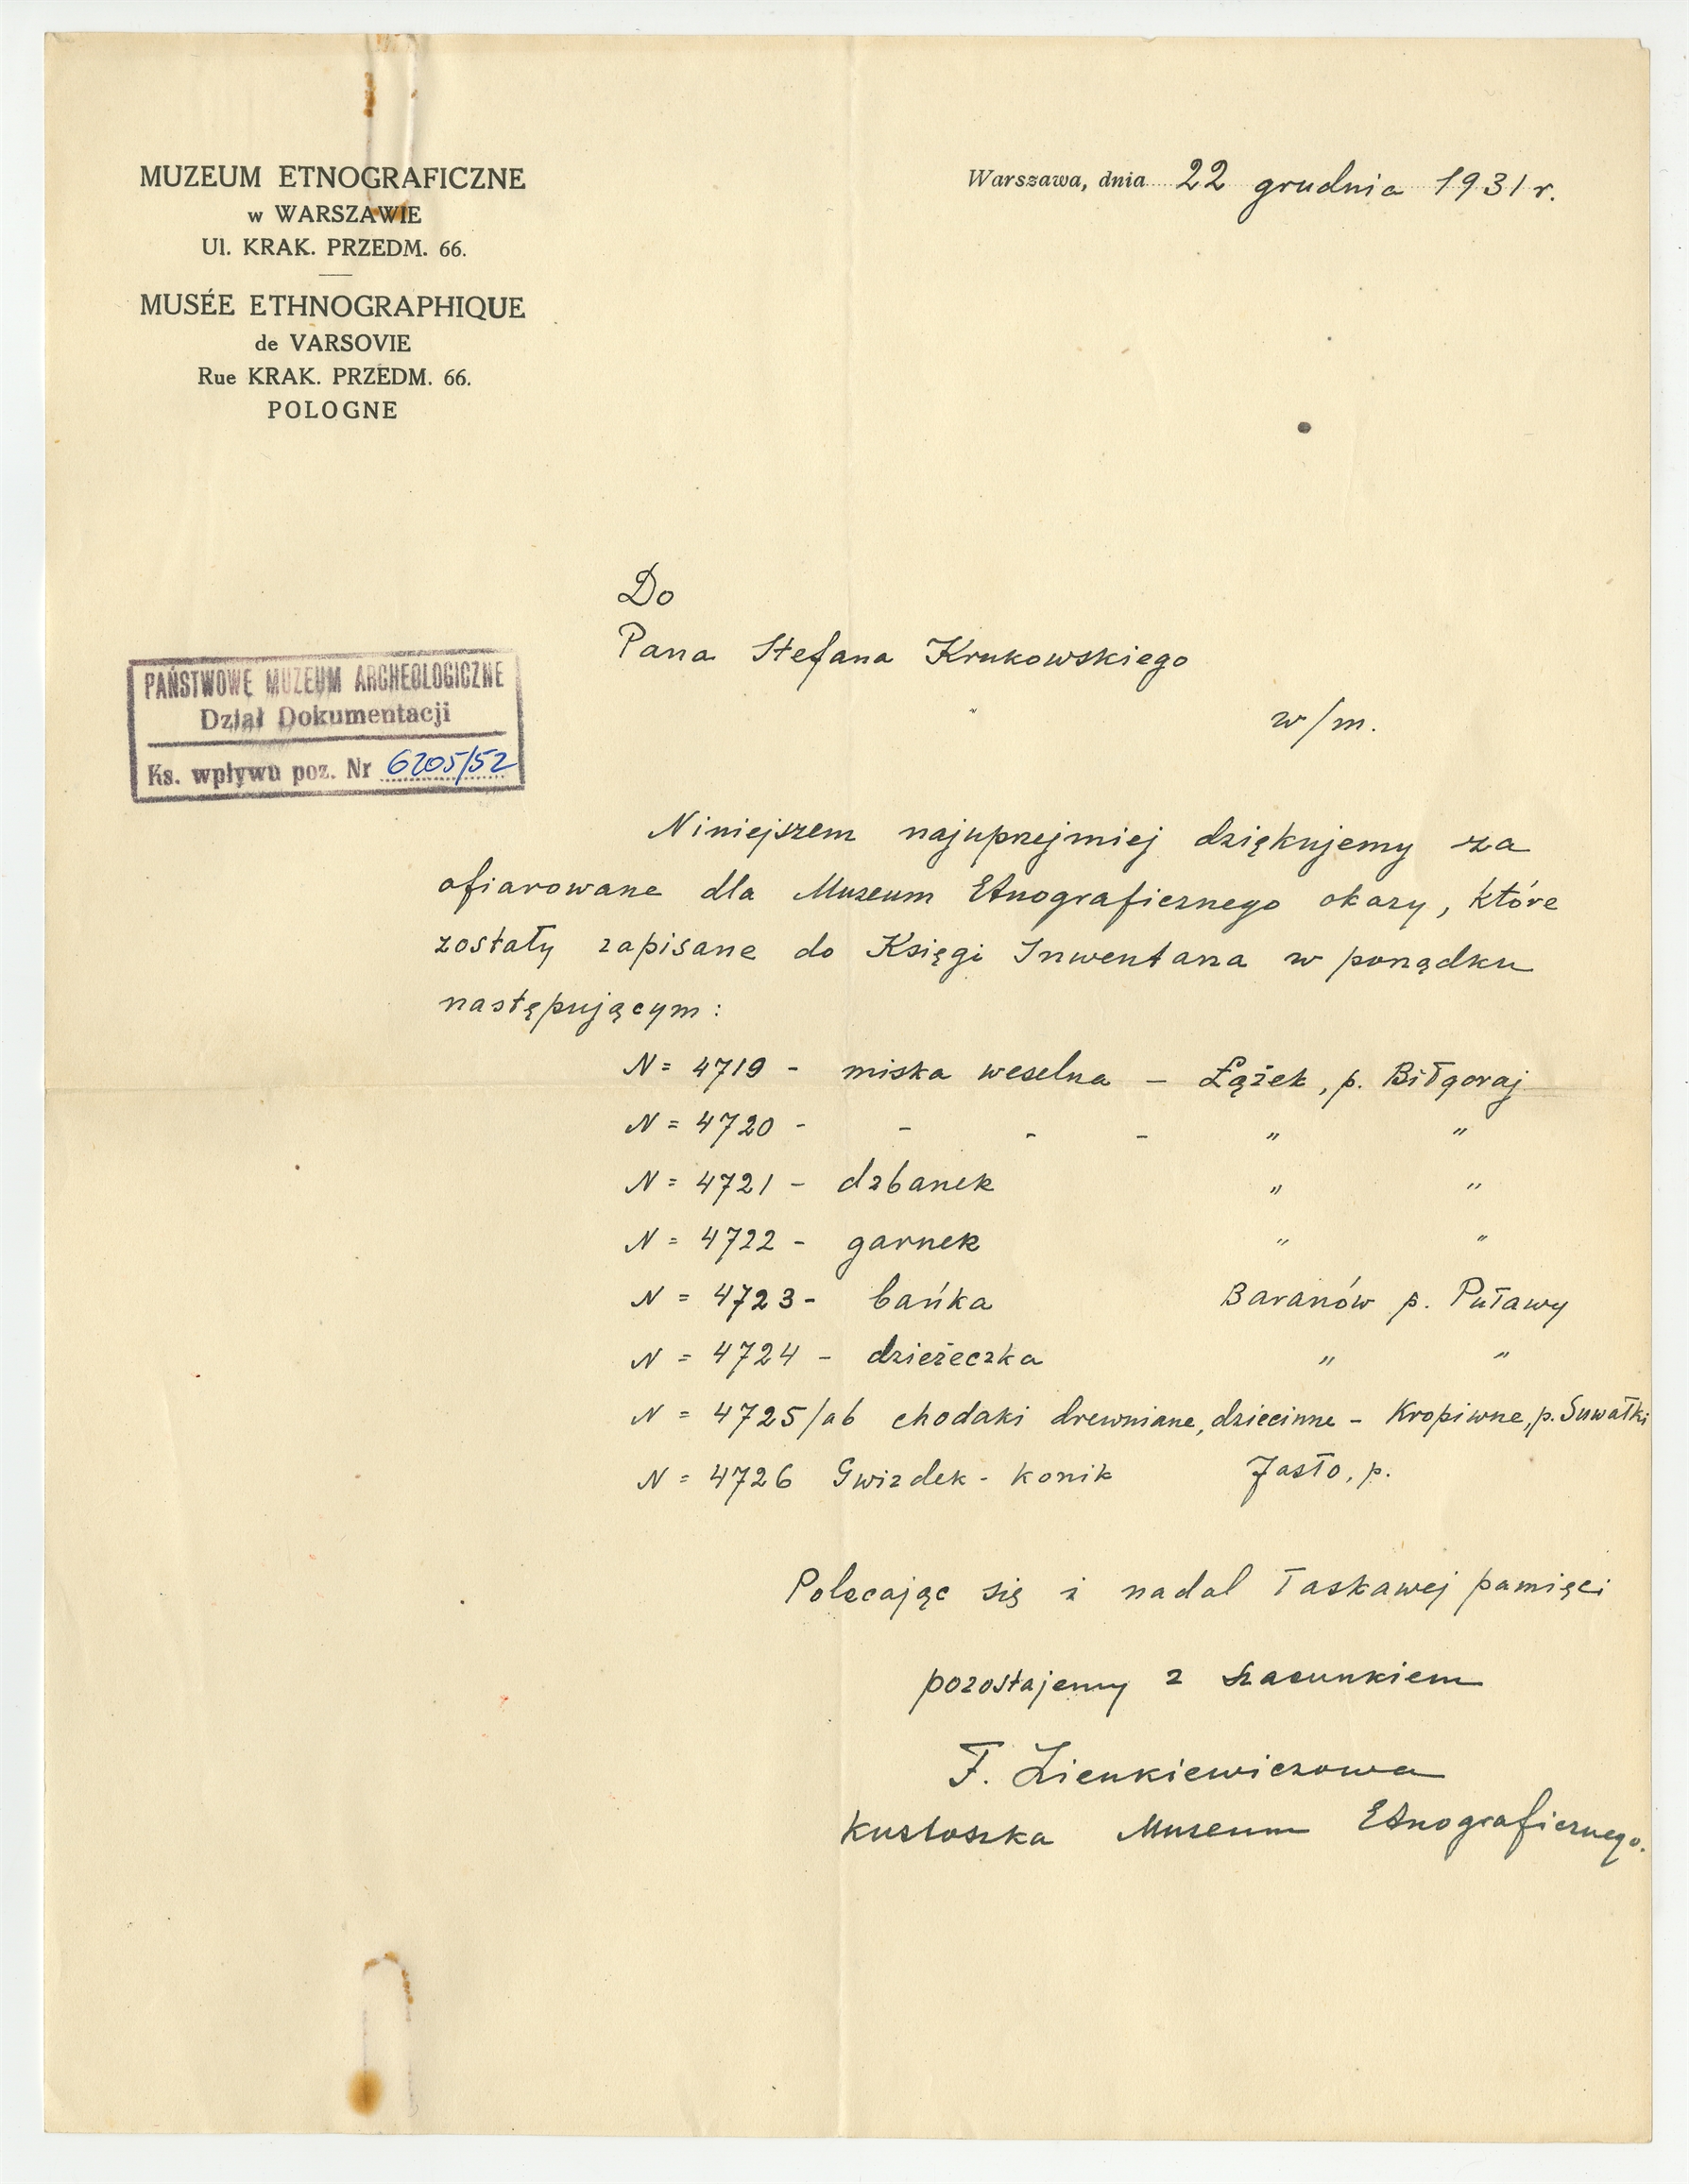 MUZEUM ETNOGRAFICZNE
w WARSZAWIE
Ul. KRAK. PRZEDM. 66.
MUSÉE ETHNOGRAPHIQUE
de VARSOVIE
Rue KRAK. PRZEDM. 66.
POLOGNE
Warszawa, dnia 22 grudnia 1931 r.
Do
Pana Stefana Krukowskiego
w/m.
PAŃSTWOWE MUZEUM ARCHEOLOGICZNE
Dział Dokumentacji
Ks. wpływu poz. Nr 6205/52
Niniejszem najuprzejmiej dziękujemy za
ofiarowane dla Muzeum Etnograficznego okazy, które
zostały zapisane do Księgi Inwentarza w porządku
następującym:
N= 4719 - miska weselna - Łążek, p. Biłgoraj
N= 4720 - - - - " "
N= 4721 - dzbanek " "
N= 4722 - garnek " "
N= 4723 - bańka Baranów p. Puławy
N= 4724 - dzieżeczka " "
N= 4725/ab chodaki drewniane, dziecinne - Kropiwne, p. Suwałki
N= 4726 Gwizdek - konik Jasło, p.
Polecając się i nadal łaskawej pamięci
pozostajemy z szacunkiem
F. Zienkiewiczowa
Kustoszka Muzeum Etnograficznego.